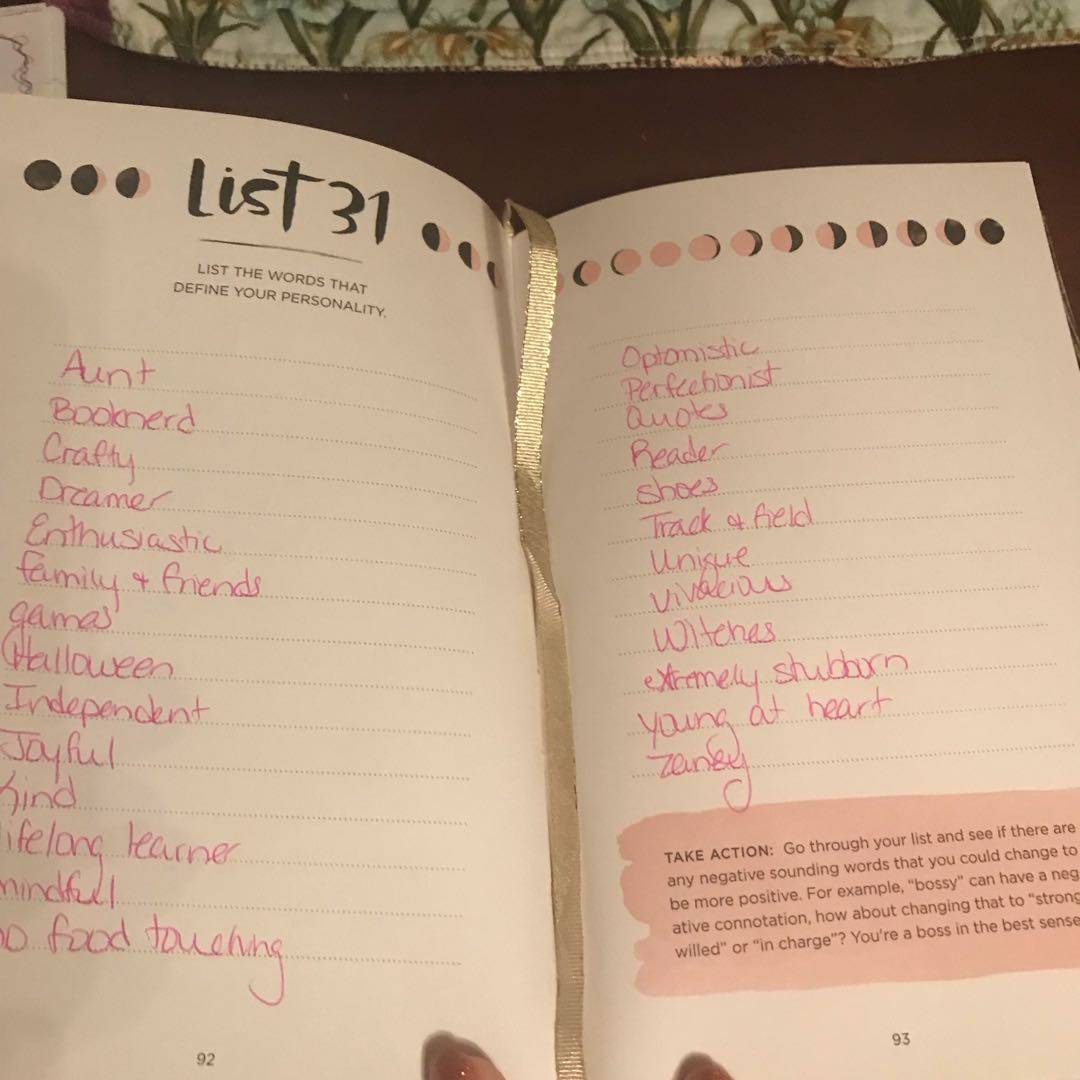 List 31
LIST THE WORDS THAT
DEFINE YOUR PERSONALITY.
Aunt
Booknerd
Crafty
Dreamer
Enthusiastic
family + friends
games
Halloween
Independent
Joyful
kind
lifelong learner
mindful
no food touching
92
Optomistic
Perfectionist
Quotes
Reader
shoes
Track & field
Unique
vivacious
Witches
extremely stubborn
young at heart
zaney
TAKE ACTION: Go through your list and see if there are
any negative sounding words that you could change to
be more positive. For example, "bossy" can have a neg-
ative connotation, how about changing that to "strong
willed" or "in charge"? You're a boss in the best sense
93